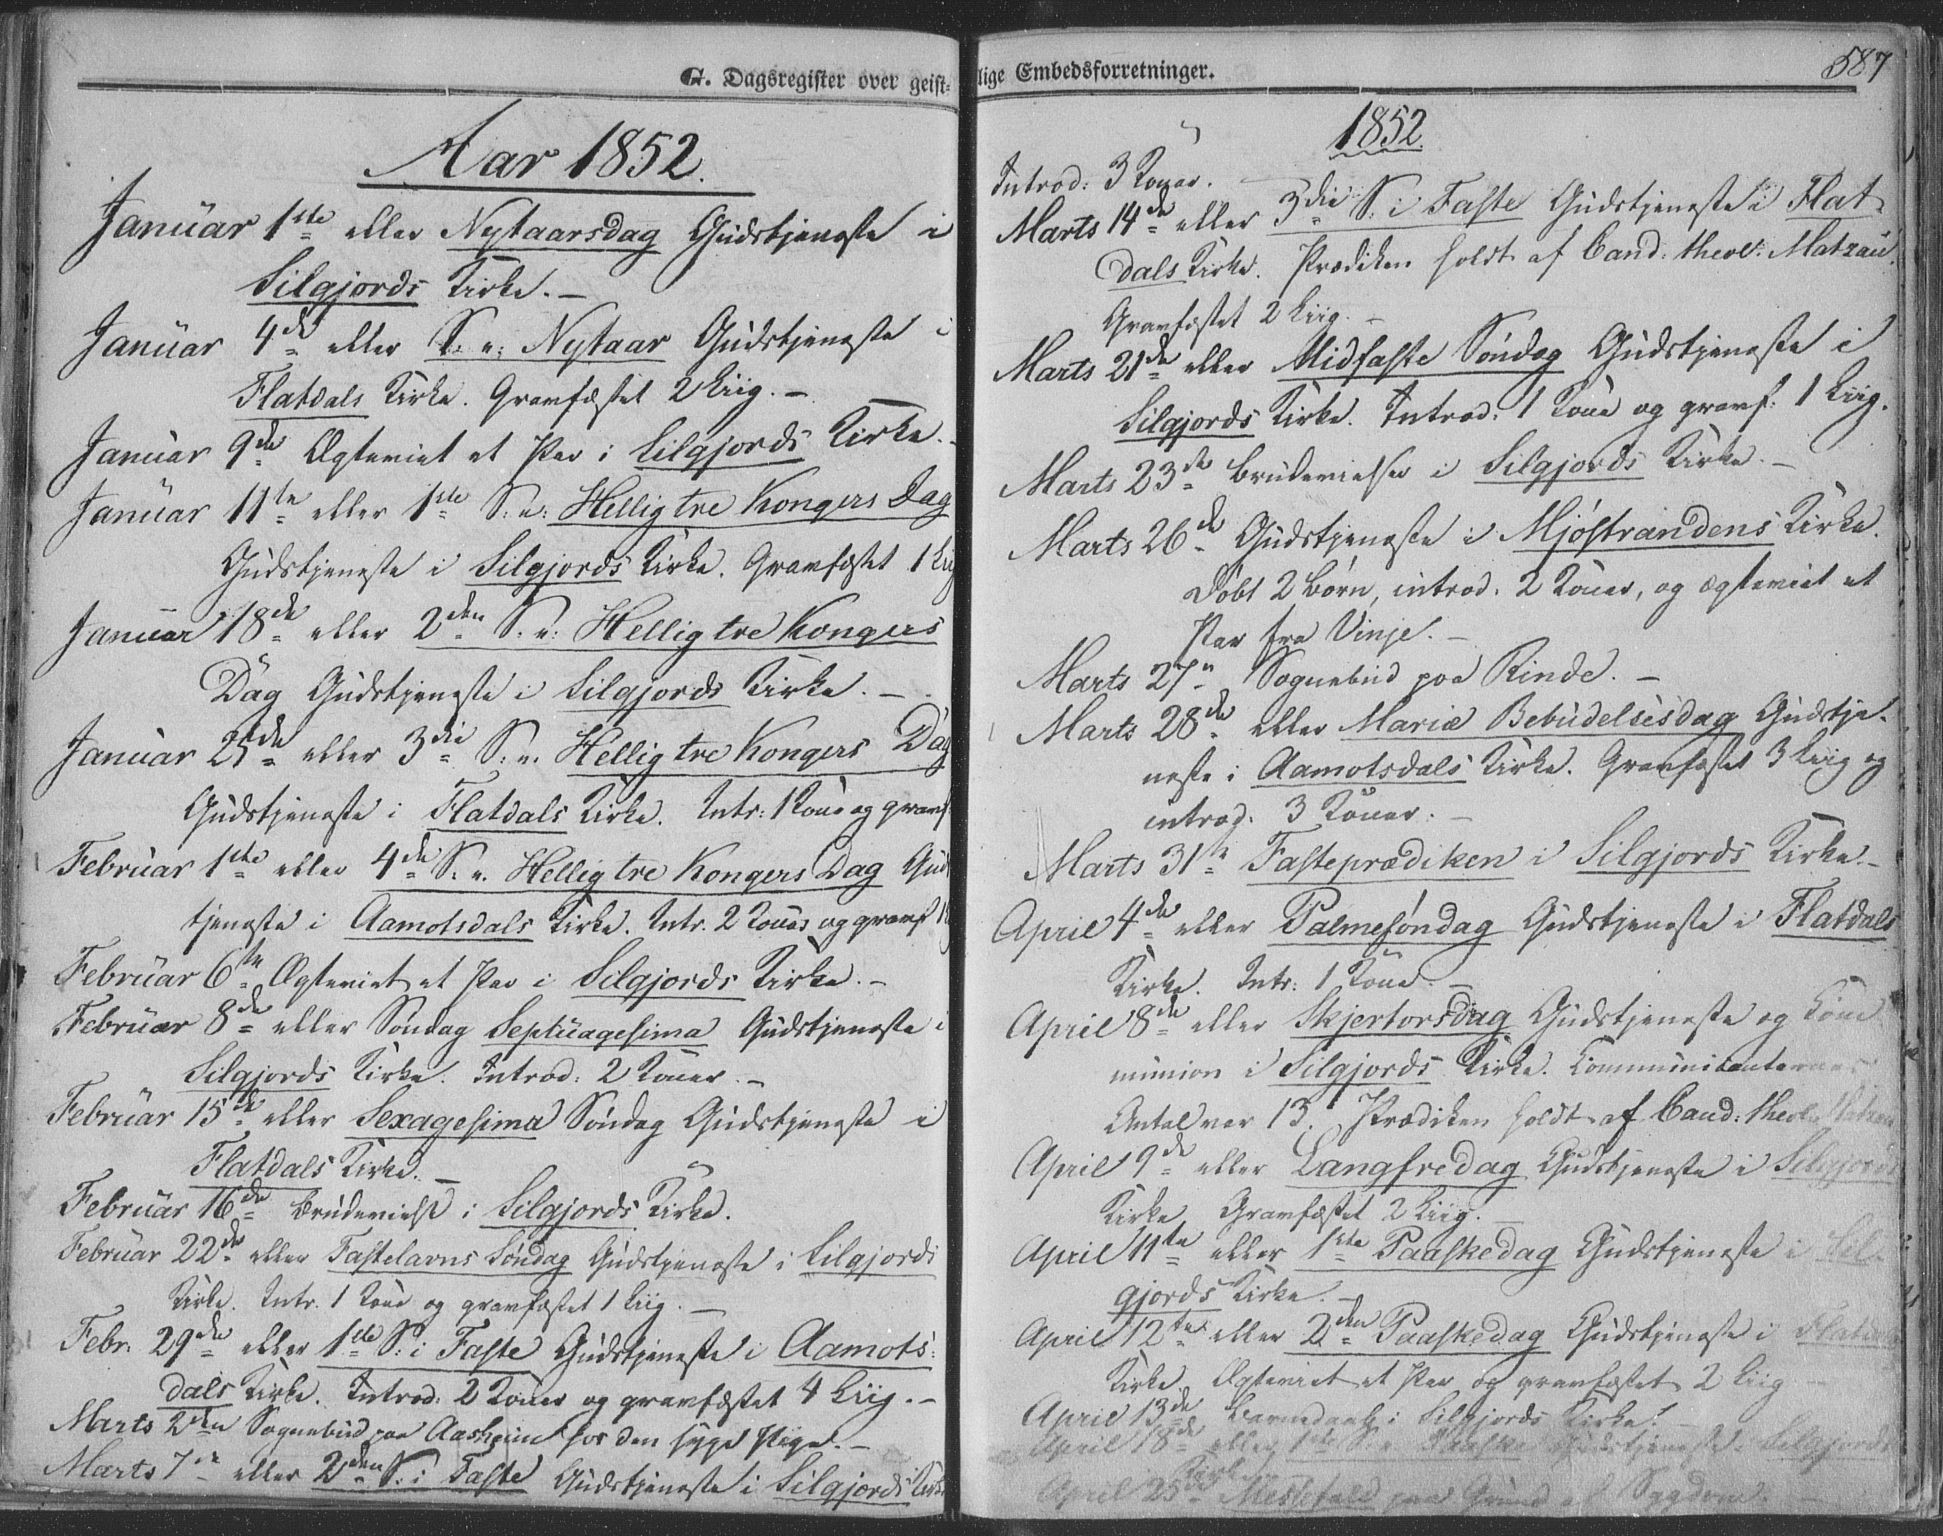 G. Dagsregister over geist-
Aar 1852.
Januar 1ste eller Nytaarsdag Gudstjeneste i
Silgjords Kirke. –
Januar 4de eller S. e. Nytaar Gudstjeneste i
Flatdals Kirke. Gravfæstet 2 Liig. –
Januar 9de Ægteviet et Par i Silgjords Kirke. –
Januar 11te eller 1ste S. e. Hellig tre Kongers Dag
Gudstjeneste i Silgjords Kirke. Gravfæstet 1 Liig
Januar 18de eller 2den S. e. Hellig tre Kongers
Dag Gudstjeneste i Silgjords Kirke. –
Januar 25de eller 3die S. e. Hellig tre Kongers Dag
Gudstjeneste i Flatdals Kirke. Intr: 1 Kone og gravf
Februar 1ste eller 4de S. e. Hellig tre Kongers Dag Gud
tjeneste i Aamotsdals Kirke. Intr. 2 Koner og gravf
Februar 6te Ægteviet et Par i Silgjords Kirke. –
Februar 8de eller Søndag Septuagesima Gudstjeneste i
Silgjords Kirke. Introd: 2 Koner. –
Februar 15de eller Sexagesima Søndag Gudstjeneste i
Flatdals Kirke. –
Februar 16de Brudevielse i Silgjords Kirke.
Februar 22de eller Fastelavns Søndag Gudstjeneste i Silgjords
Kirke. Intr. 1 Kone og gravfæstet 1 Liig. –
Febr. 29de eller 1ste S. i Faste Gudstjeneste i Aamots-
dals Kirke. Introd: 2 Koner og gravfæstet 4 Liig. –
Marts 2den Sognebud paa Aasheim hos den syge Pige. –
Marts 7de eller 2den S. i Faste Gudstjeneste i Silgjords Kirke
lige Embedsforretninger.
587
1852.
Introd: 3 Koner.
Marts 14de eller 3die S. i Faste Gudstjeneste i Flat-
dals Kirke. Prædiken holdt af Cand: theol: Matzau.
Gravfæstet 2 Liig. –
Marts 21de eller Midfaste Søndag Gudstjeneste i
Silgjords Kirke. Introd: 1 Kone og gravf: 1 Liig.
Marts 23de Brudevielse i Silgjords Kirke. –
Marts 26de Gudstjeneste i Mjøstrandens Kirke.
Døbt 2 Børn, introd. 2 Koner, og ægteviet et
Par fra Vinje. –
Marts 27de Sognebud paa Rinde. –
Marts 28de eller Mariæ Bebudelsesdag Gudstje-
neste i Aamotsdals Kirke. Gravfæstet 3 Liig og
introd. 3 Koner. –
Marts 31te Fasteprædiken i Silgjords Kirke. –
April 4de eller Palmesøndag Gudstjeneste i Flatdals
Kirke. Intr: 1 Kone. –
April 8de eller Skjertorsdag Gudstjeneste og Com
munion i Silgjords Kirke. Communicanternes
Antal var 13. Prædiken holdt af Cand: theol: Matzau
April 9de eller Langfredag Gudstjeneste i Silgjords
Kirke. Gravfæstet 2 Liig. –
April 11te eller 1ste Paaskedag Gudstjeneste i Sil-
gjords Kirke. –
April 12te eller 2den Paaskedag Gudstjeneste i Flatdals
Kirke. Ægteviet et Par og gravfæstet 2 Liig –
April 13de Barnedaab i Silgjords Kirke. –
April 18de eller 1ste S. e. Paaske Gudstjeneste i Silgjords
Kirke
April 25de Messefald paa Grund af Sygdom. –